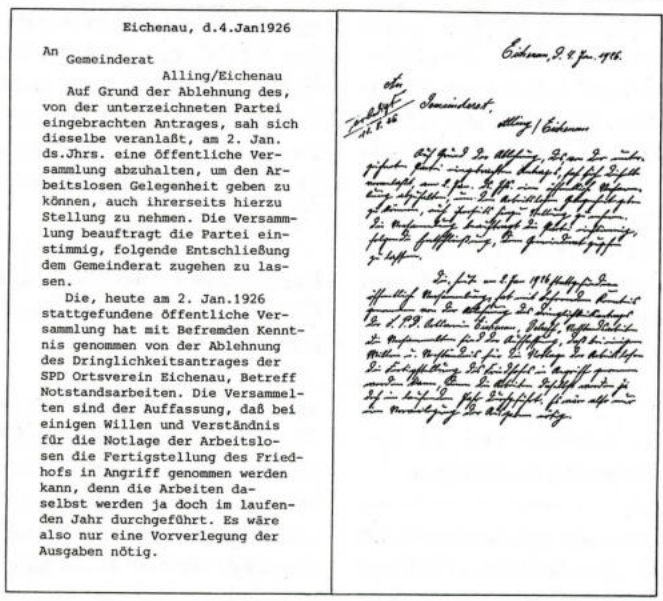 Eichenau, d.4.Jan1926
An
Gemeinderat
Alling/Eichenau
Auf Grund der Ablehnung des,
von der unterzeichneten Partei
eingebrachten Antrages, sah sich
dieselbe veranlaßt, am 2. Jan.
ds.Jhrs. eine öffentliche Ver-
sammlung abzuhalten, um den Ar-
beitslosen Gelegenheit geben zu
können, auch ihrerseits hierzu
Stellung zu nehmen. Die Versamm-
lung beauftragt die Partei ein-
stimmig, folgende Entschließung
dem Gemeinderat zugehen zu las-
sen.
Die, heute am 2. Jan.1926
stattgefundene öffentliche Ver-
sammlung hat mit Befremden Kennt-
nis genommen von der Ablehnung
des Dringlichkeitsantrages der
SPD Ortsverein Eichenau, Betreff
Notstandsarbeiten. Die Versammel-
ten sind der Auffassung, daß bei
einigen Willen und Verständnis
für die Notlage der Arbeitslo-
sen die Fertigstellung des Fried-
hofs in Angriff genommen werden
kann, denn die Arbeiten da-
selbst werden ja doch im laufen-
den Jahr durchgeführt. Es wäre
also nur eine Vorverlegung der
Ausgaben nötig.
Eichenau, d. 4. Jan. 1926.
An
erledigt
Gemeinderat,
Alling/Eichenau
Auf Grund der Ablehnung, des, von der unter-
zeichneten Partei eingebrachten Antrags, sah sich dieselbe
veranlaßt, am 2. Jan. ds. Jhs. eine öffentliche Versamm-
lung abzuhalten, um den Arbeitslosen Gelegenheit geben
zu können, auch ihrerseits hierzu Stellung zu nehmen.
Die Versammlung beauftragt die Partei einstimmig,
folgende Entschließung, dem Gemeinderat zugehen
zu lassen.
Die, heute am 2. Jan 1926 stattgefundene
öffentliche Versammlung, hat mit Befremden Kenntnis
genommen von der Ablehnung des Dringlichkeitsantrags
der S.P.D. Ortsverein Eichenau, Betreff, Notstandsarbeiten
Die Versammelten sind der Auffassung, daß bei einigen
Willen u. Verständnis für die Notlage der Arbeitslosen
die Fertigstellung des Friedhofs in Angriff genommen
werden kann, denn die Arbeiten daselbst werden ja
doch im laufenden Jahr durchgeführt. Es wäre also nur
eine Vorverlegung der Ausgaben nötig.